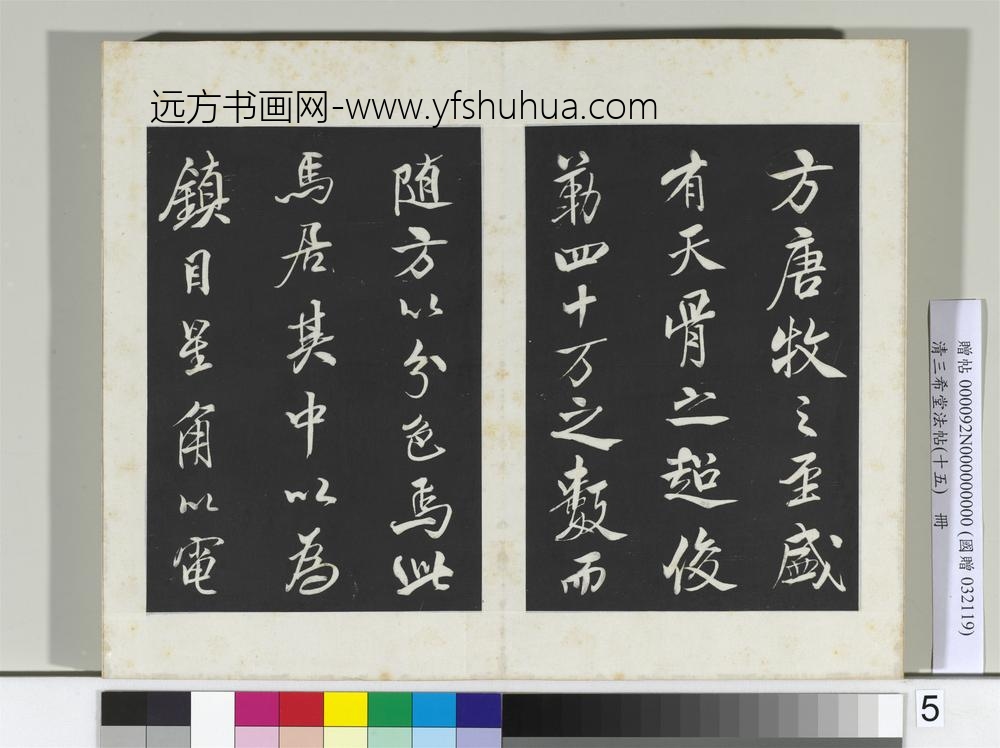 远方书画网-www.yfshuhua.com
方唐牧之至盛
有天骨之超俊
勒四十万之數而
随方以分色焉此
馬居其中以為
鎮目星角以電
贈帖 000092N000000000 (國贈 032119)
清三希堂法帖(十五) 冊
5